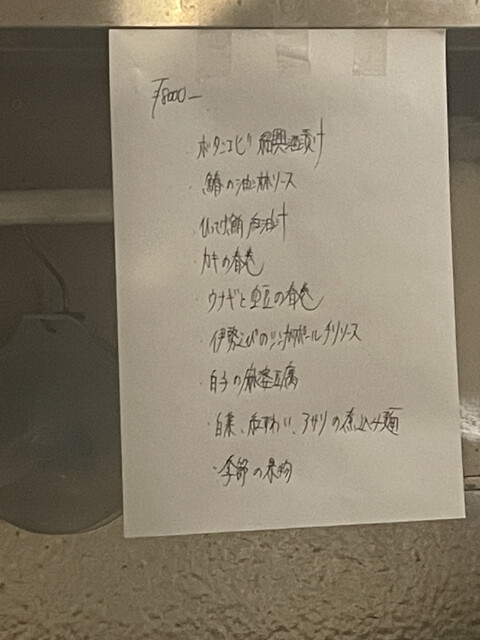 ¥8000-
・ボタンエビ 紹興酒漬け
・鰆の油淋ソース
・カキの春巻
・ウナギと豆の春巻
・伊勢えびのシンガポールチリソース
・白子の麻婆豆腐
・白菜、ずわい、アサリの煮込み麺
・季節の果物